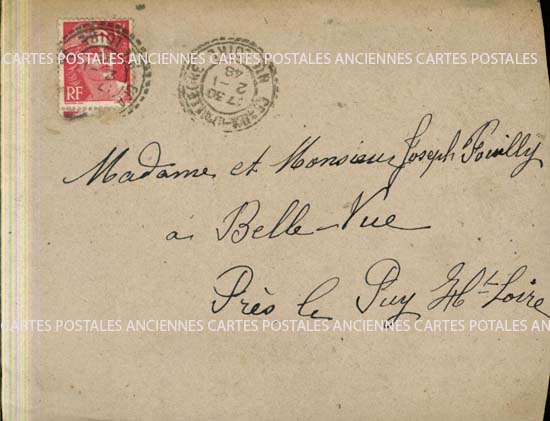 CARTES POSTALES ANCIENNES CARTES POSTALES ANCIENNES CARTES POTALES ANCIENNES
RF
17 30
2 - 1
48
Madame et Monsieur Joseph Fouilly
à Belle-Vue
Près le Puy Hte Loire
CARTES POSTALES ANCIENNES CARTES POSTALES ANCIENNES CARTES POTALES ANCIENNES